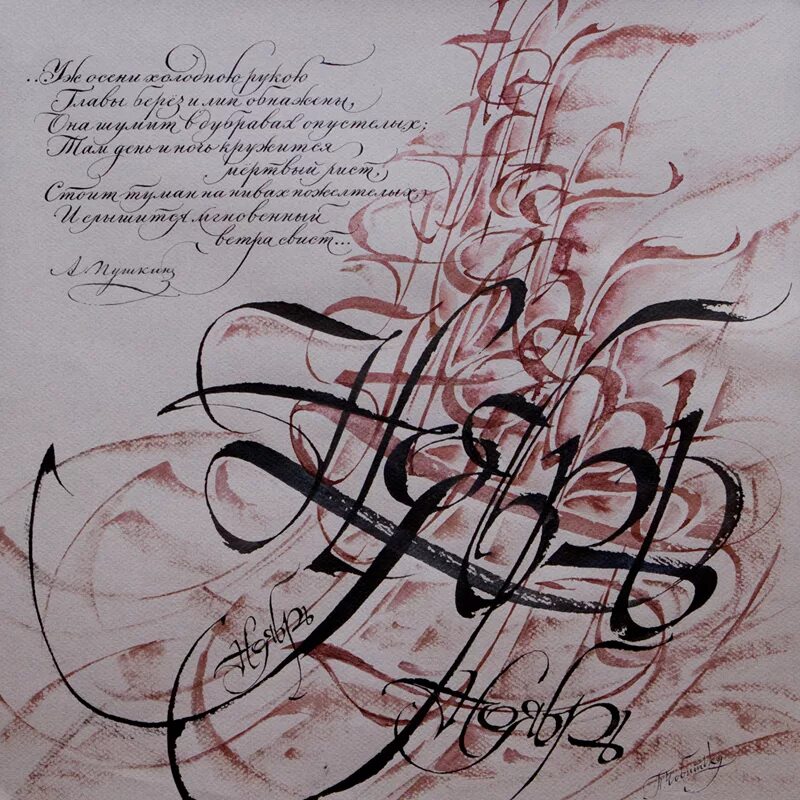 ..Уж осени холодною рукою
Главы берёз и лип обнажены,
Она шумит в дубравах опустелых;
Там день и ночь кружится
мёртвый лист,
Стоит туман на нивах пожелтелых,
И слышится мгновенный
ветра свист...
А. Пушкин
Ноябрь
Ноябрь
Ноябрь